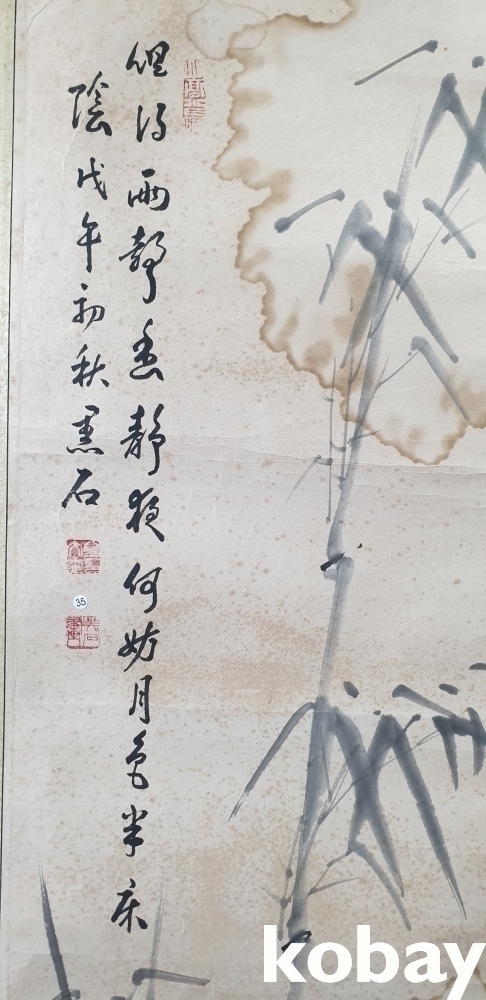 但得雨聲靜夜何妨月色半床
陰戊午初秋黑石
35
kobay